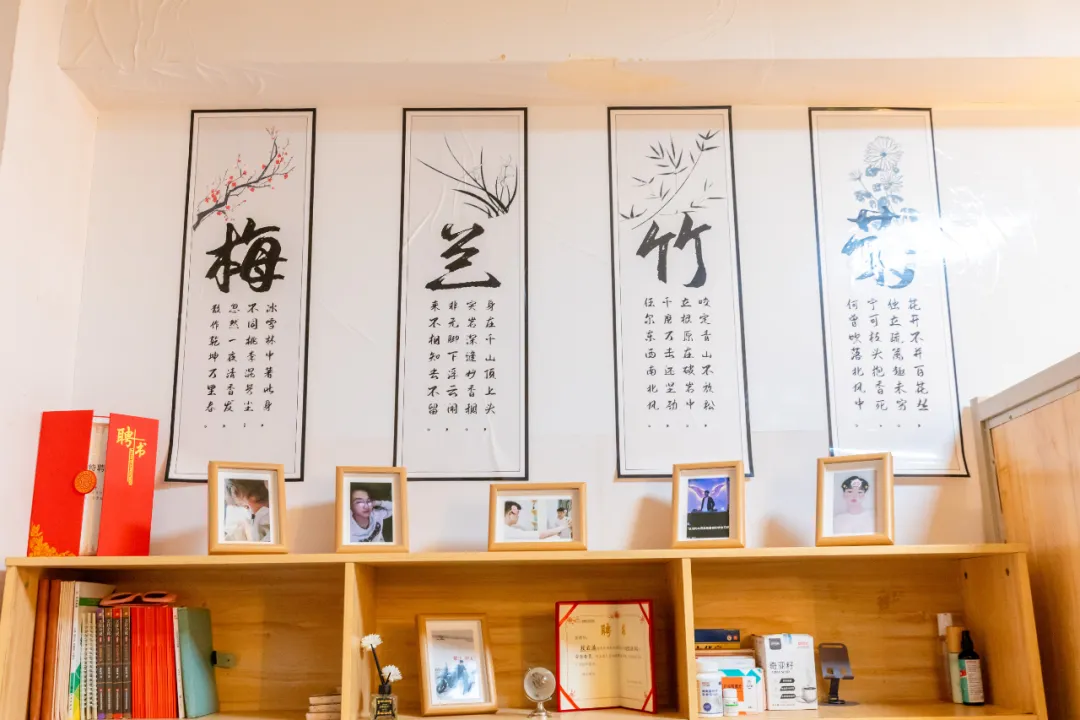 梅
冰雪林中著此身
不同桃李混芳尘
忽然一夜清香发
散作乾坤万里春
兰
身在千山顶上头
突岩深缝妙香稠
非无脚下浮云闹
来不相知去不留
竹
咬定青山不放松
立根原在破岩中
千磨万击还坚劲
任尔东西南北风
菊
花开不并百花丛
独立疏篱趣未穷
宁可枝头抱香死
何曾吹落北风中
聘书
特聘
聘书
奇亚籽